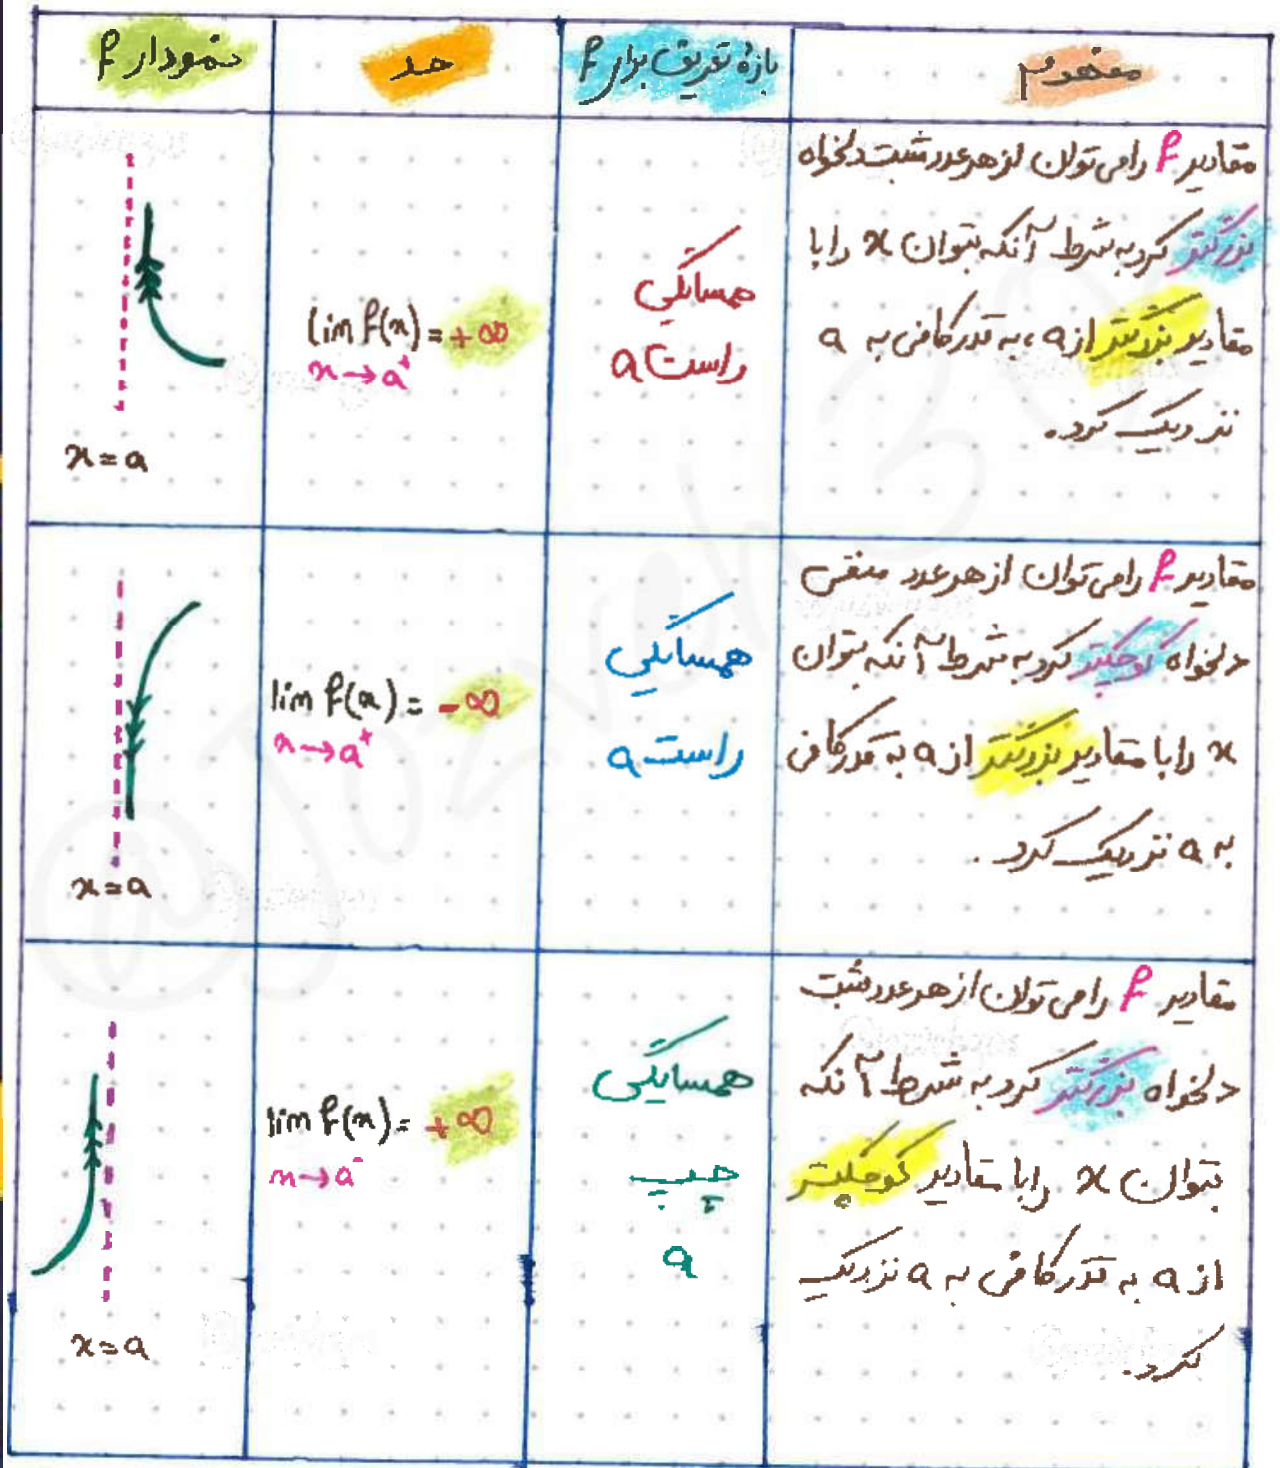 مفهوم
بازهٔ تعریف برای f
حد
نمودار f
مقادیر f را می‌توان از هر عدد مثبت دلخواه
بزرگتر کرد به شرط آنکه بتوان x را با
مقادیر بزرگتر از a، به قدر کافی به a
نزدیک کرد.
همسایگی
راست a
lim f(x) = +∞
x→a⁺
x=a
مقادیر f را می‌توان از هر عدد منفی
دلخواه کوچکتر کرد به شرط آنکه بتوان
x را با مقادیر بزرگتر از a به قدر کافی
به a نزدیک کرد.
همسایگی
راست a
lim f(x) = -∞
x→a⁺
x=a
مقادیر f را می‌توان از هر عدد مثبت
دلخواه بزرگتر کرد به شرط آنکه
بتوان x را با مقادیر کوچکتر
از a به قدر کافی به a نزدیک
کرد.
همسایگی
چپ
a
lim f(x) = +∞
x→a⁻
x=a
@Jozveh3